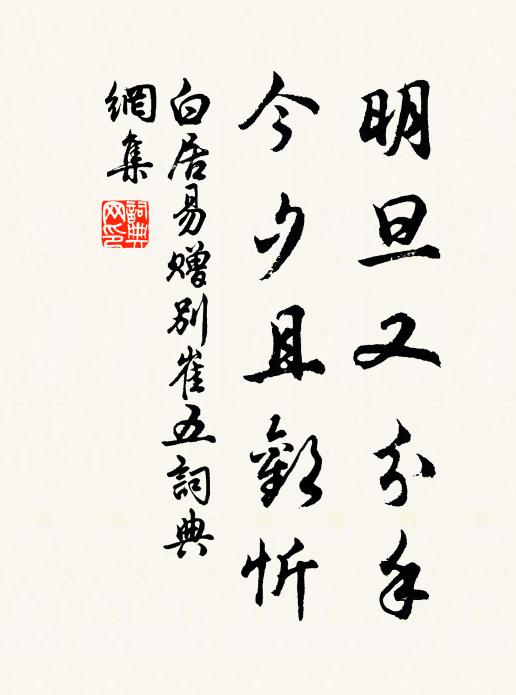 明旦又分手
今夕且歡忻
白居易赠别崔五詞典
網集
詞典网印